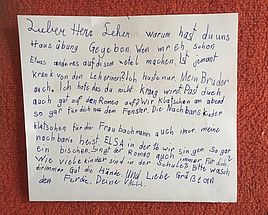 Lieber Herr Leher warum hast du uns
Haus übung Gegeben. Wen mir eh schon
Etwas anderes auf diesen machen. Ist jemant
krank von den Lehernnen? Ich huste nur. Mein Bruder
auch. Ich hofe das du nicht krang wirst. Past du ich
auch gut auf den Romeo auf? Wir klatschen am abend
so gar für dich aus dem Fenster. Die Nachbarskinder
klatschen für die Frau bachmann auch imer meine
nachbarin heist ELSA in der 16 wir singen so gar
ein bischen. Singt der Romeo auch immer für dich?
Wie viele kinder sind in der Schule? Bitte wasch
dirimmer Gut die Hände. Und Liebe Grüße an
den Ferdi. Deine